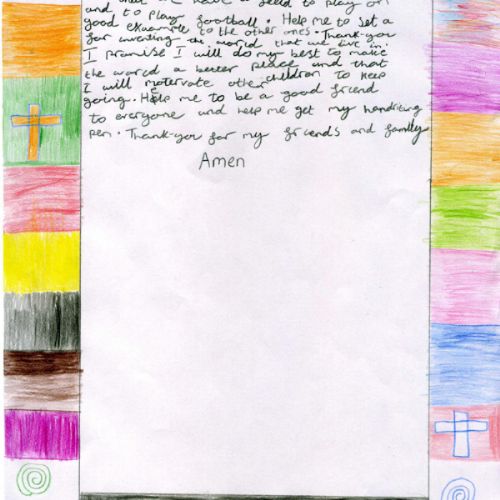 have a feild to play on
and to play football. Help me to set a
good exuample to the other ones. Thank-you
for inventing the world that we live in.
I promise I will do my best to make
the world a better place and that
I will motervate other children to keep
going. Help me to be a good friend
to everyone and help me get my handriting
pen. Thank-you for my friends and family
Amen